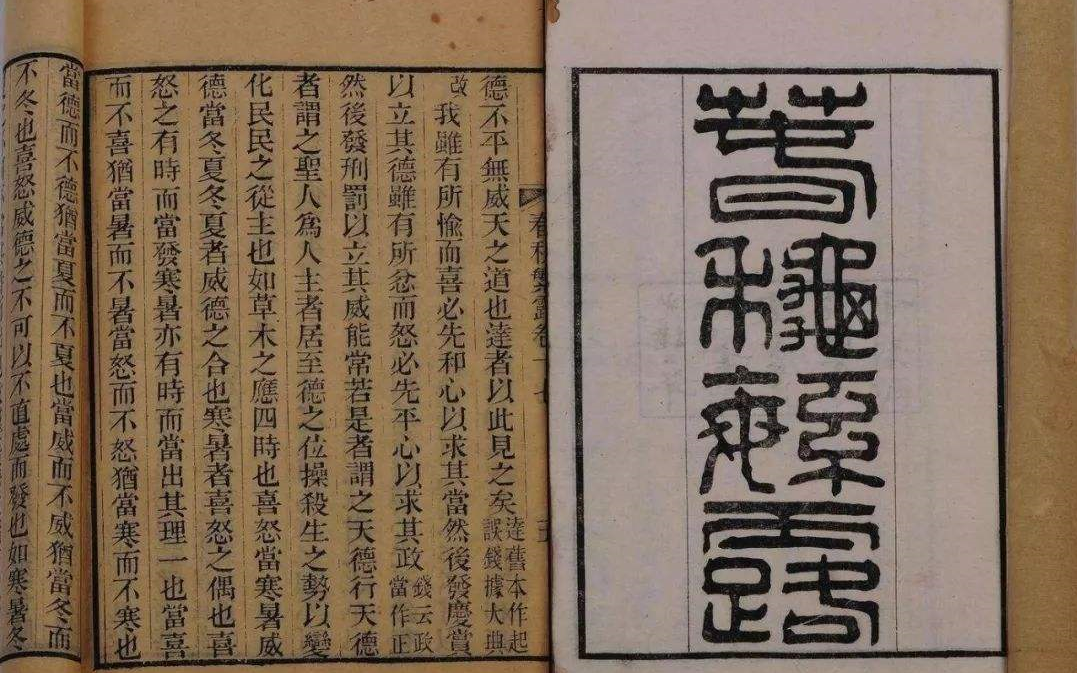 萅龝緐露
春秋繁露卷十七
德不平無威天之道也逹者以此見之矣逹舊本作起誤錢據大典
改我雖有所愉而喜必先和心以求其當然後發慶賞
以立其德雖有所忿而怒必先平心以求其政錢云政當作正
然後發刑罰以立其威能常若是者謂之天德行天德
者謂之聖人爲人主者居至德之位操殺生之勢以變
化民民之從主也如草木之應四時也喜怒當寒暑威
德當冬夏冬夏者威德之合也寒暑者喜怒之偶也喜
怒之有時而當發寒暑亦有時而當出其理一也當喜
而不喜猶當暑而不暑當怒而不怒猶當寒而不寒也
當德而不德猶當夏而不夏也當威而不威猶當冬而
不冬也喜怒威德之不可以不直處而發也如寒暑冬